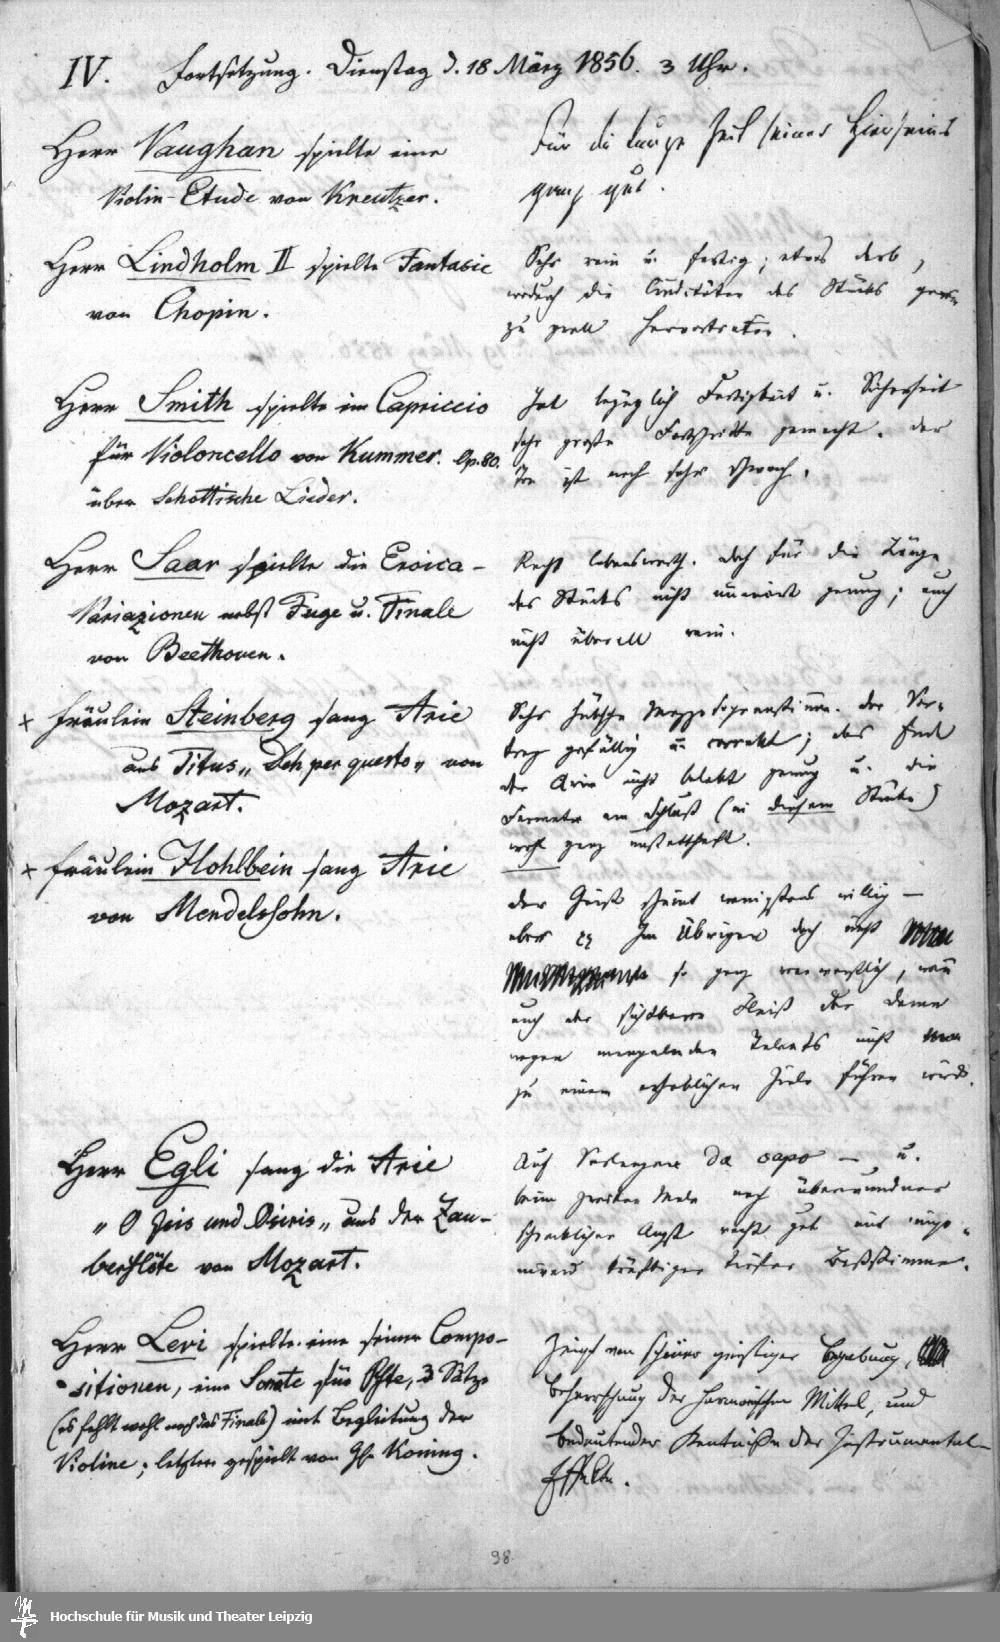 IV. Fortsetzung. Dienstag d. 18 März 1856. 3 Uhr.
Herr Vaughan spielte eine
Violin-Etude von Kreutzer.
Für die lange Zeit seines Hierseins
ganz gut.
Herr Lindholm II spielte Fantasie
von Chopin.
Sehr rein u. fertig; etwas derb,
wodurch die Cruditäten des Stücks
zu grell hervortraten.
Herr Smith spielte ein Capriccio
für Violoncello von Kummer. Op. 80.
über Schottische Lieder.
Hat bezüglich Fertigkeit u. Sicherheit
sehr große Fortschritte gemacht. der
Ton ist noch sehr schwach.
Herr Saar spielte die Eroica-
Variazionen nebst Fuge u. Finale
von Beethoven.
Recht lobenswerth. doch für die Länge
des Stücks nicht nuancirt genug; auch
nicht überall rein.
+ Fräulein Steinberg sang Arie
aus Titus „Deh per questo„ von
Mozart.
Sehr hübsche Mezzosopranstimme. der Vor-
trag gefällig u. correkt; das Ende
der Arie nicht belebt genug u. die
Fermate am Schluß (in diesem Stücke)
wohl ganz unstatthaft.
+ Fräulein Hohlbein sang Arie
von Mendelssohn.
der Geist scheint wenigstens willig —
aber Im Übrigen doch nicht
so ganz verwerflich, wenn
auch der sichtbare Fleiß der Dame
wegen mangelnden Talents nicht
zu einem erheblichen Ziele führen wird.
Herr Egli sang die Arie
„O Isis und Osiris„ aus der Zau-
berflöte von Mozart.
Auf Verlangen Da capo — u.
beim zweiten Male nach überwundner
schrecklicher Angst recht gut mit
kräftiger tiefer Baßstimme.
Herr Levi spielte eine seiner Compo-
sitionen, eine Sonate für Pfte, 3 Sätze
(es fehlt wohl noch das Finale) mit Begleitung der
Violine; letztere gespielt von H. Koning.
Zeugt von schöner geistiger Begabung,
Beherrschung der harmonischen Mittel, und
bedeutender Kentniße der Instrumental-
Effekte.
98
Hochschule für Musik und Theater Leipzig